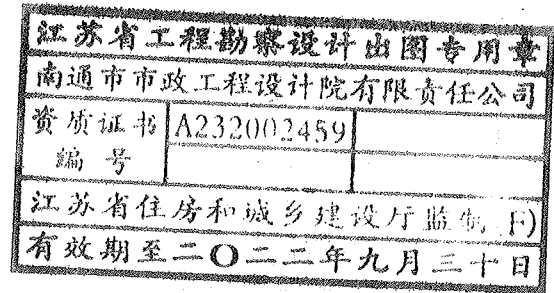 江苏省工程勘察设计出图专用章
南通市市政工程设计院有限责任公司
资质证书 A232002459
编号
江苏省住房和城乡建设厅监制 F)
有效期至二〇二二年九月三十日